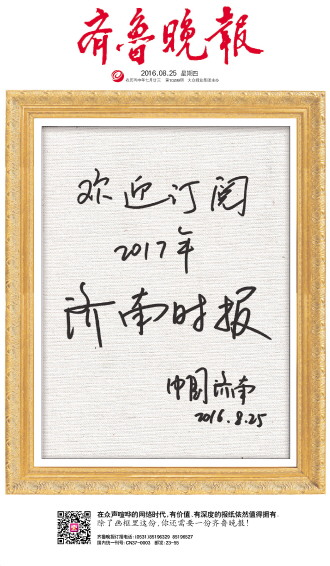 齐鲁晚报
2016.08.25 星期四
欢迎订阅
2017年
济南时报
中国济南
2016.8.25
在众声喧哗的网络时代，有价值、有深度的报纸依然值得拥有，
除了画框里这份，你还需要一份齐鲁晚报！
齐鲁晚报订报电话：(0531)85196329 85196527
国内统一刊号：CN37-0003 邮发：23-55